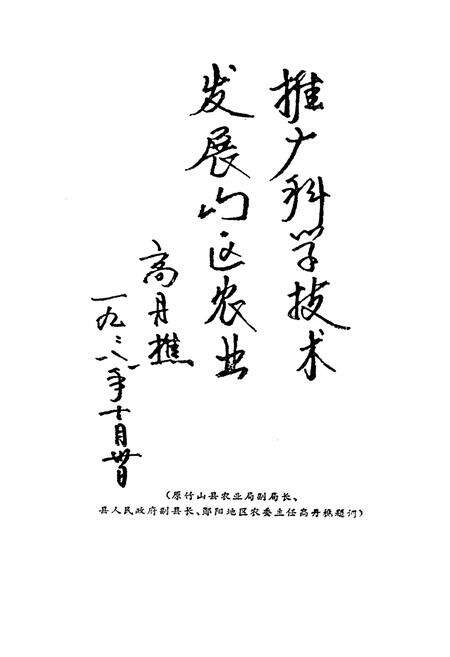 推广科学技术
发展山区农业
高丹樵
一九八八年十月日
(原竹山县农业局副局长、
县人民政府副县长、郧阳地区农委主任高丹樵题词)